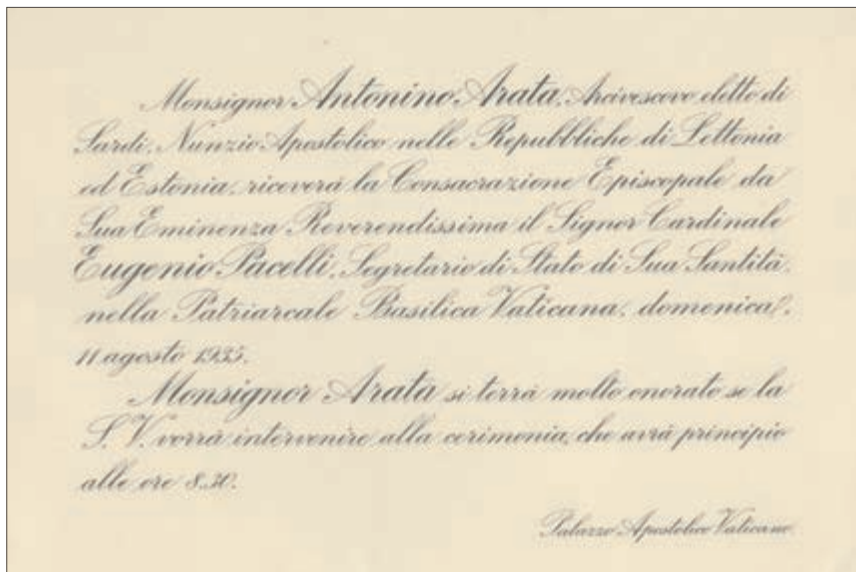 Monsignor Antonino Arata, Arcivescovo eletto di
Sardi, Nunzio Apostolico nelle Repubbliche di Lettonia
ed Estonia, riceverà la Consacrazione Episcopale da
Sua Eminenza Reverendissima il Signor Cardinale
Eugenio Pacelli, Segretario di Stato di Sua Santità,
nella Patriarcale Basilica Vaticana, domenica,
11 agosto 1935.
Monsignor Arata si terrà molto onorato se la
S. V. vorrà intervenire alla cerimonia, che avrà principio
alle ore 8.30.
Palazzo Apostolico Vaticano